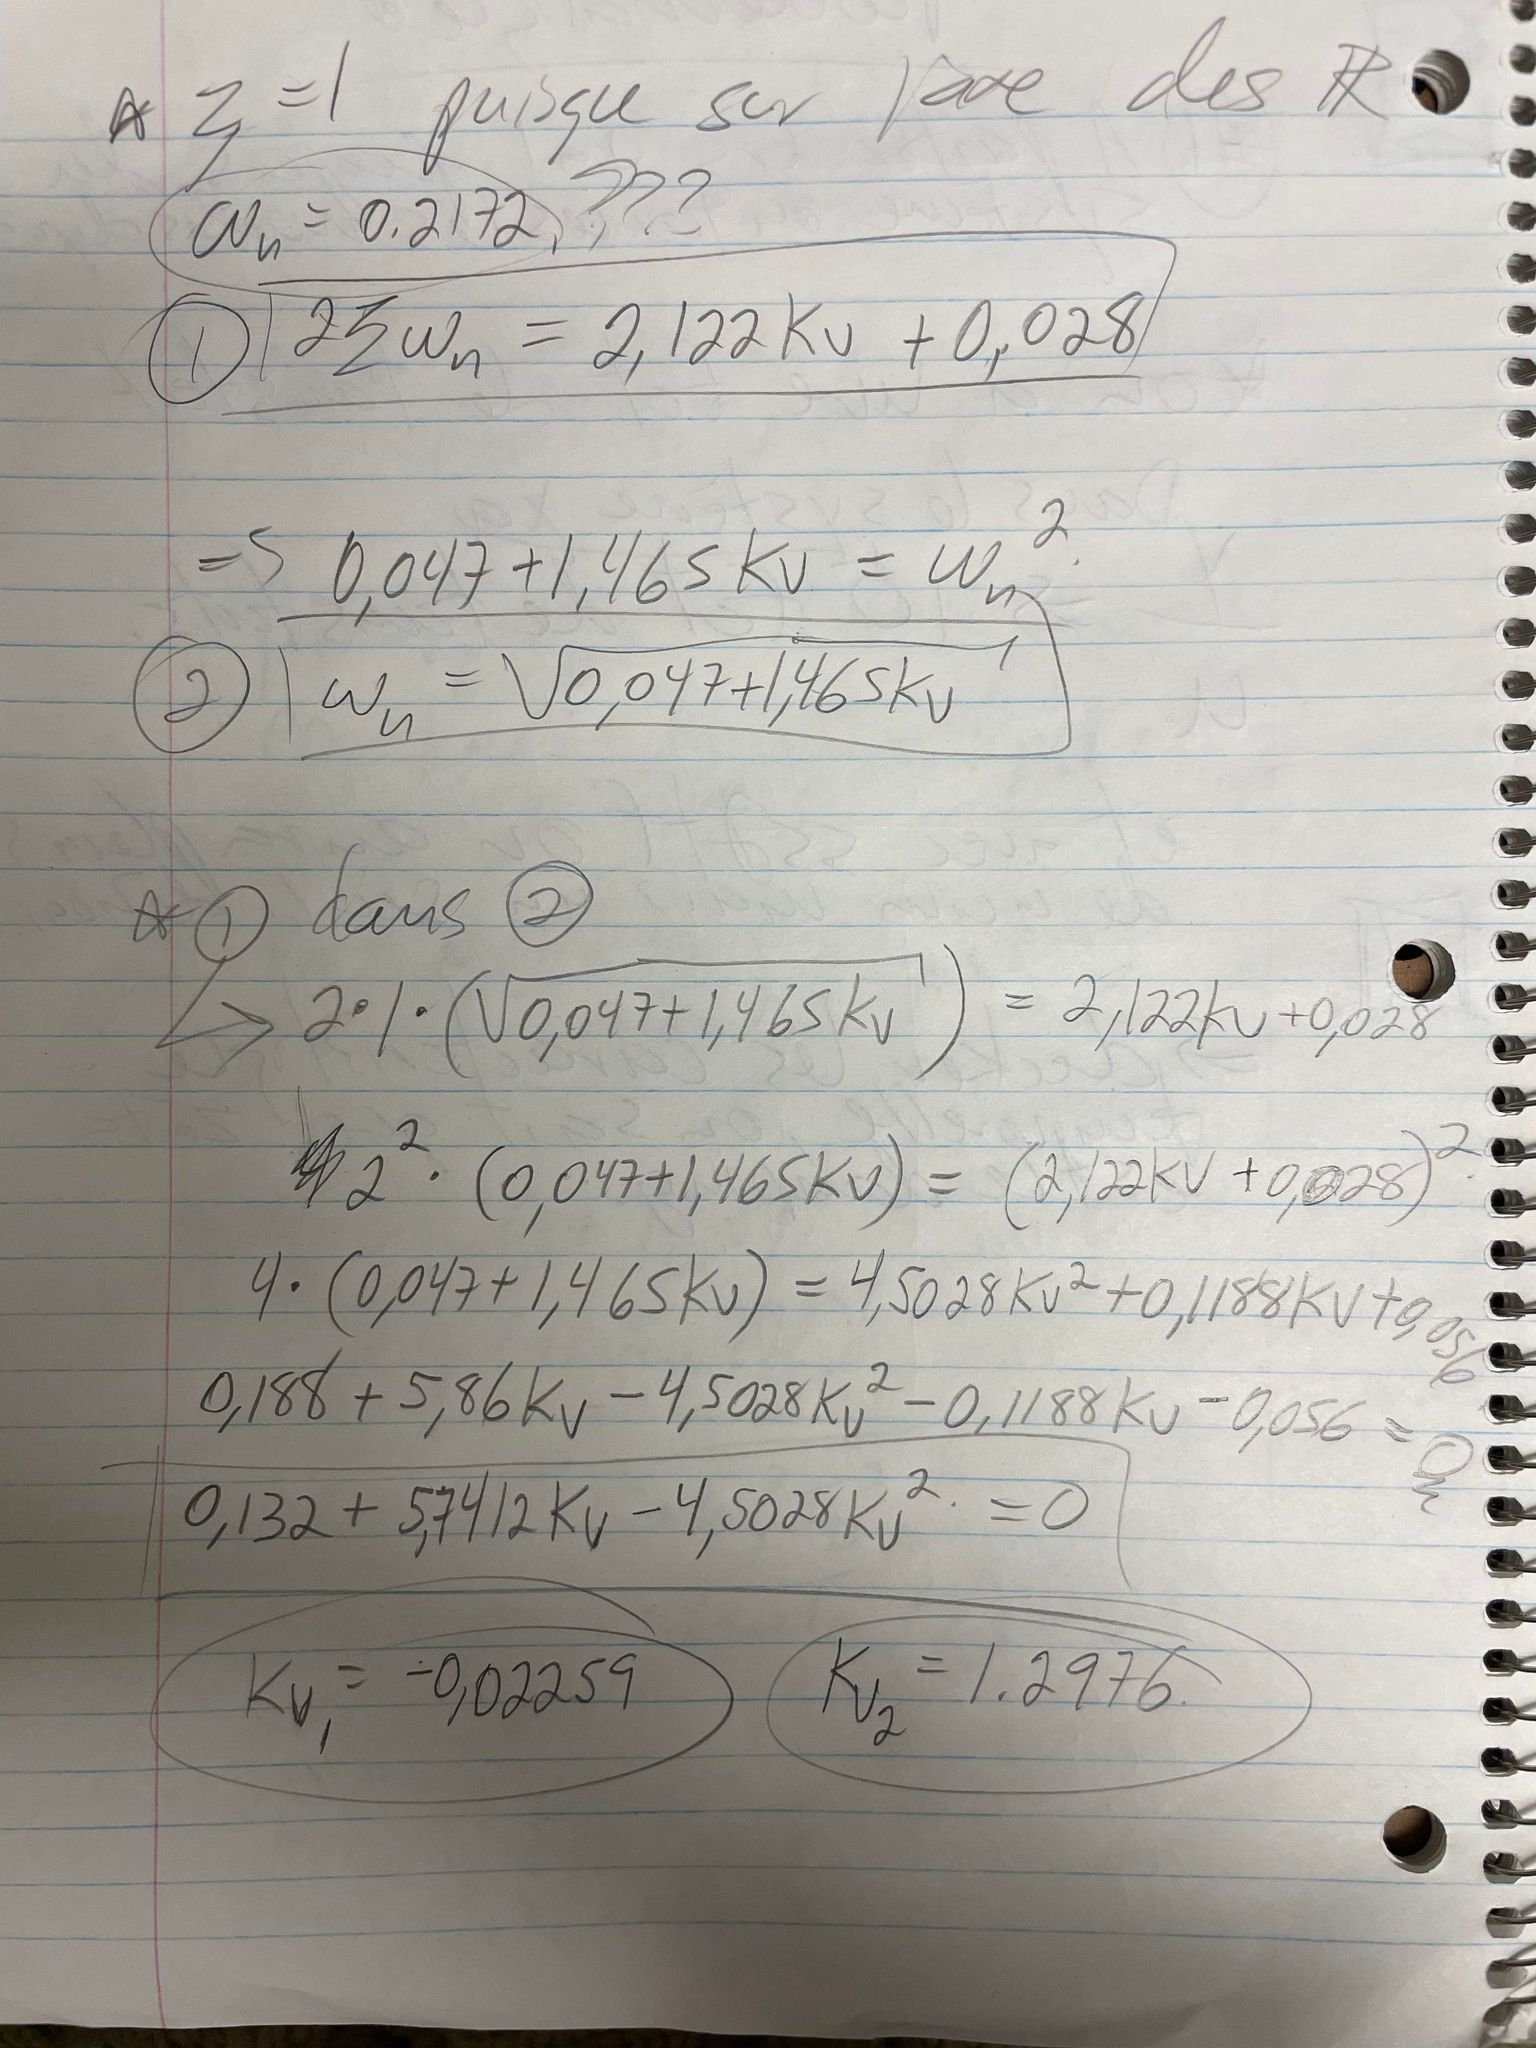 * ζ = 1 puisque sur l'axe des ℝ
ωn = 0.2172, ???
① 2ζωn = 2,122Kv + 0,028
=> 0,047 + 1,465Kv = ωn²
② ωn = √(0,047+1,465Kv)
* ① dans ②
→ 2•1•(√(0,047+1,465Kv)) = 2,122Kv+0,028
2²•(0,047+1,465Kv) = (2,122Kv+0,028)²
4•(0,047+1,465Kv) = 4,5028Kv²+0,1188Kv+0,056
0,188 + 5,86Kv − 4,5028Kv² − 0,1188Kv − 0,056 = 0
0,132 + 5,7412Kv − 4,5028Kv² = 0
Kv₁ = -0,02259 Kv₂ = 1.2976